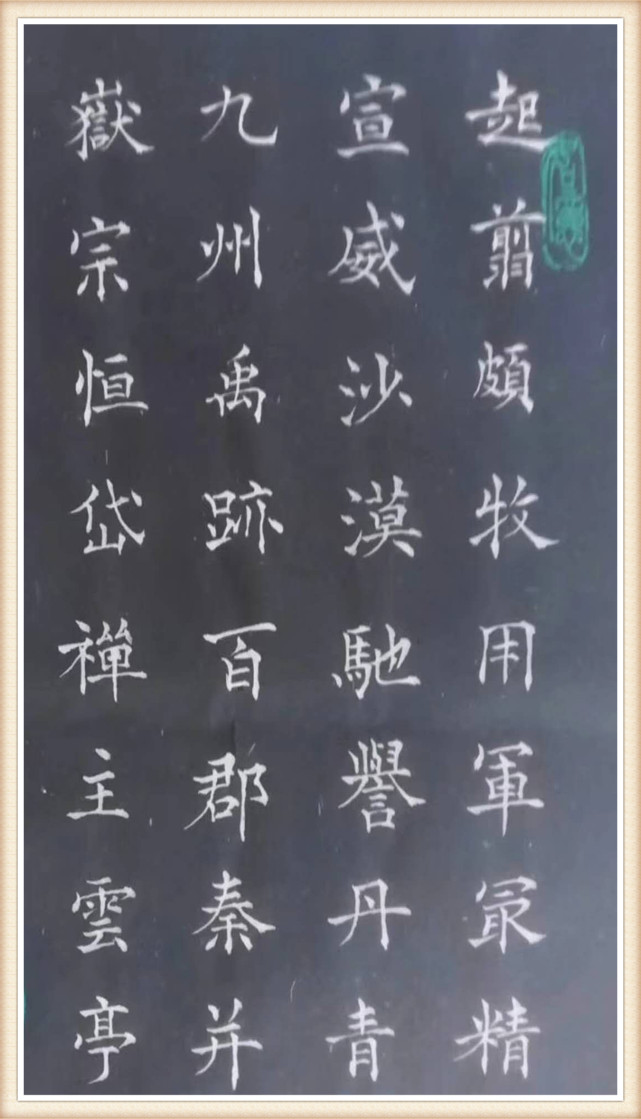 起翦頗牧用軍冣精
宣威沙漠馳譽丹青
九州禹跡百郡秦并
嶽宗恒岱禪主雲亭